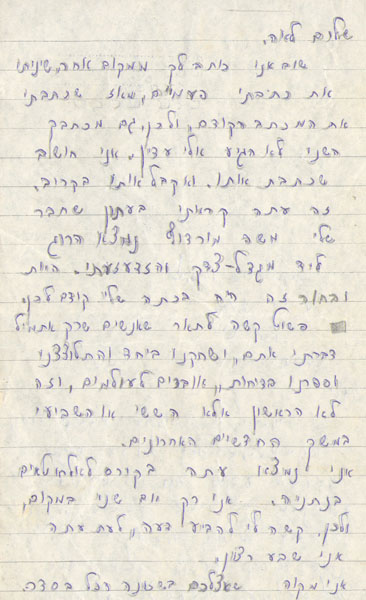 שלום לאה,
שוב אני כותב לך ממקום אחר. שיניתי
את כתיבתי פעמיים, מאז שכתבתי
את המכתב הקודם, ולכן, גם מכתבך
השני לא הגיע אלי עדין. אני חושב
שכתבת אותו. ואקבל אותו בקרוב.
זה עתה קראתי בעתון שחבר
שלי משה נמצא הרוג
ליד מגדל-צדק והזדעזעתי.
והחור זה היה בכתה שלי קודם לכן.
פשוט קשה לתאר שאנשים שרק אתמול
דברתי אתם, ושחקנו ביחד והתלוצצנו
וספרנו בדיחות, אובדים לעולמים, וזה
לא הראשון אלא הששי או השביעי
במשך החדשיים האחרונים.
אני נמצא עתה בקורס
בנתניה. אני רק יום שני במקום,
ולכן, קשה לי להביע דעה, לעת עתה
אני שבע רצון.
אני מקוה שאצלכם בשכונה הכל בסדר.